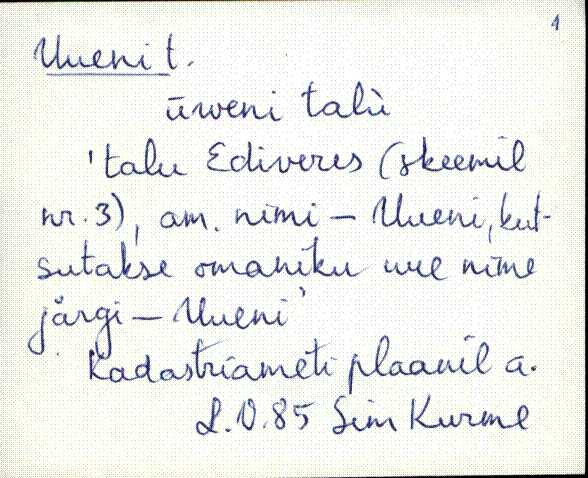 1
Uueni t.
ūweni talù
'talu Ediveres (skeemil
nr. 3), am. nimi – Uueni, kut-
sutakse omaniku uue nime
järgi – Uueni'
Kadastriameti plaanil a.
L.V. 85 Sim Kurme